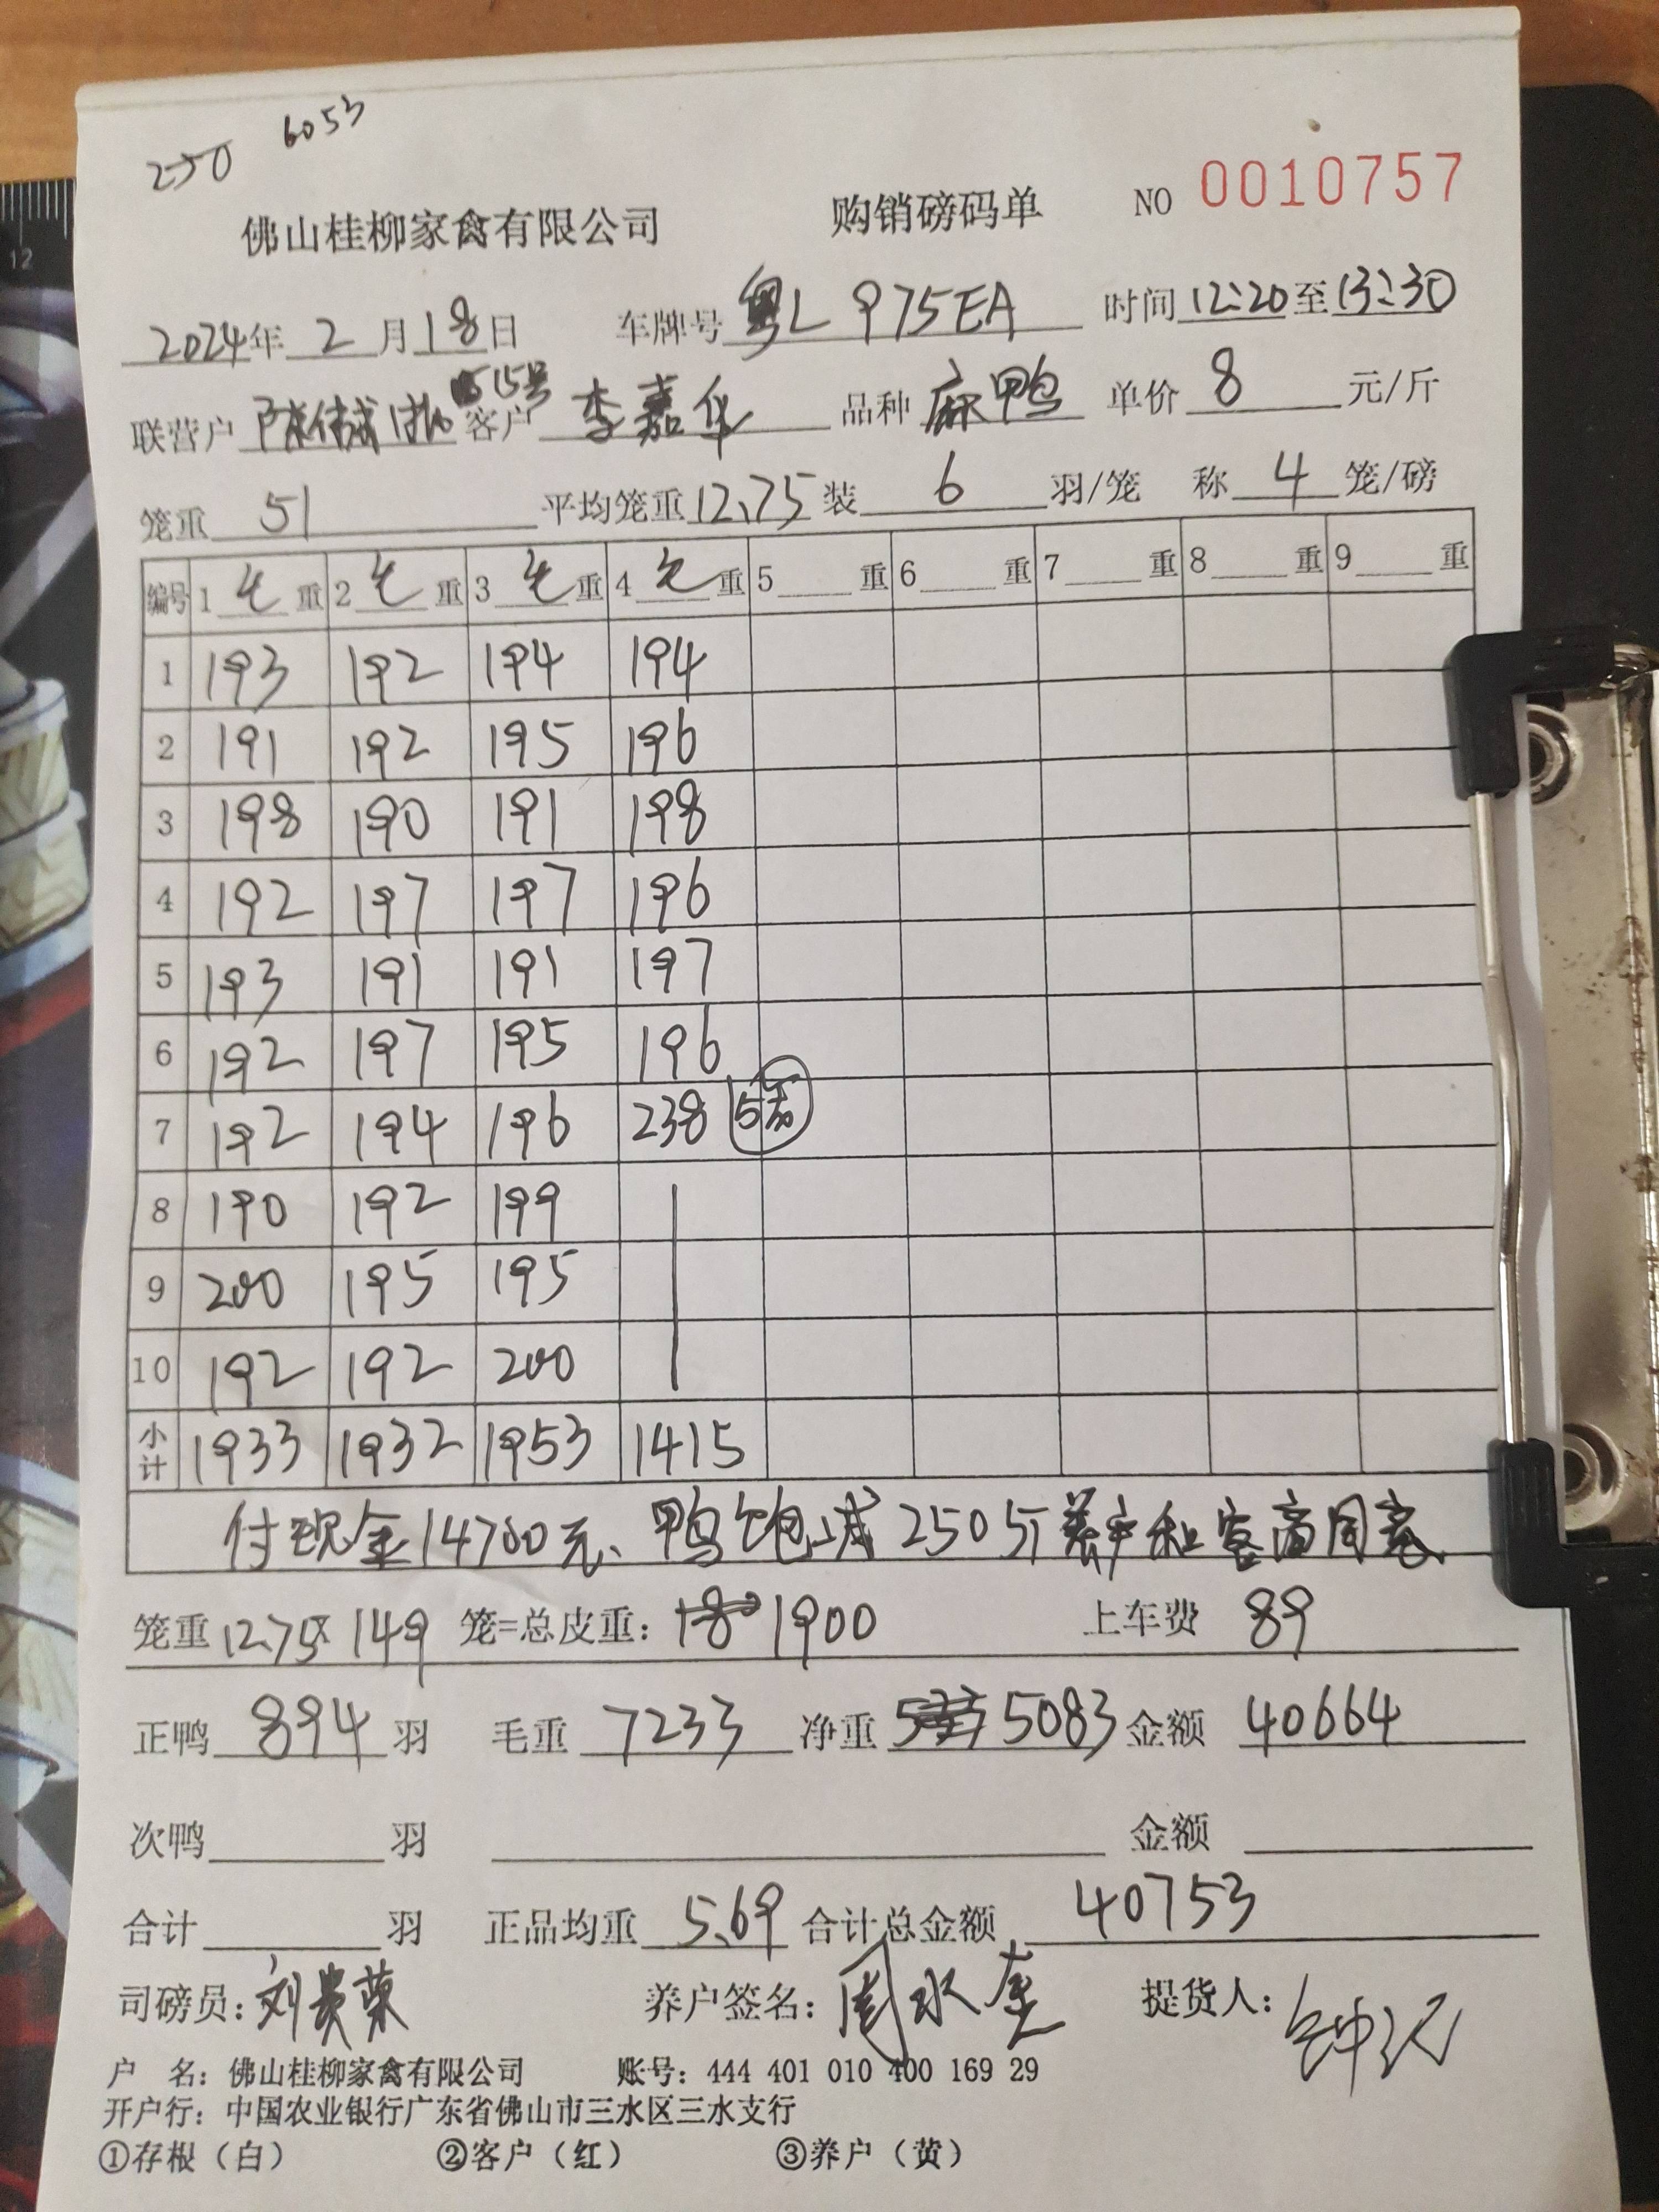 250 6053
佛山桂柳家禽有限公司 购销磅码单 NO 0010757
2024年 2 月 18 日 车牌号 粤L 975EA 时间 12:20 至 13:30
联营户 15号 客户 李嘉华 品种 麻鸭 单价 8 元/斤
笼重 51 平均笼重 12.75 装 6 羽/笼 称 4 笼/磅
编号 1 毛 重 2 毛 重 3 毛 重 4 毛 重 5 重 6 重 7 重 8 重 9 重
1 193 192 194 194
2 191 192 195 196
3 198 190 191 198
4 192 197 197 196
5 193 191 191 197
6 192 197 195 196
7 192 194 196 238 5笼
8 190 192 199
9 200 195 195
10 192 192 200
小计 1933 1932 1953 1415
付现金14700元、鸭饱减250斤养户和客商同意
笼重 12.75X 149 笼=总皮重: 1900 上车费 89
正鸭 894 羽 毛重 7233 净重 5083 金额 40664
次鸭 羽 金额
合计 羽 正品均重 5.69 合计总金额 40753
司磅员: 刘贵荣 养户签名: 提货人:
户 名: 佛山桂柳家禽有限公司 账号: 444 401 010 400 169 29
开户行: 中国农业银行广东省佛山市三水区三水支行
①存根（白） ②客户（红） ③养户（黄）
12